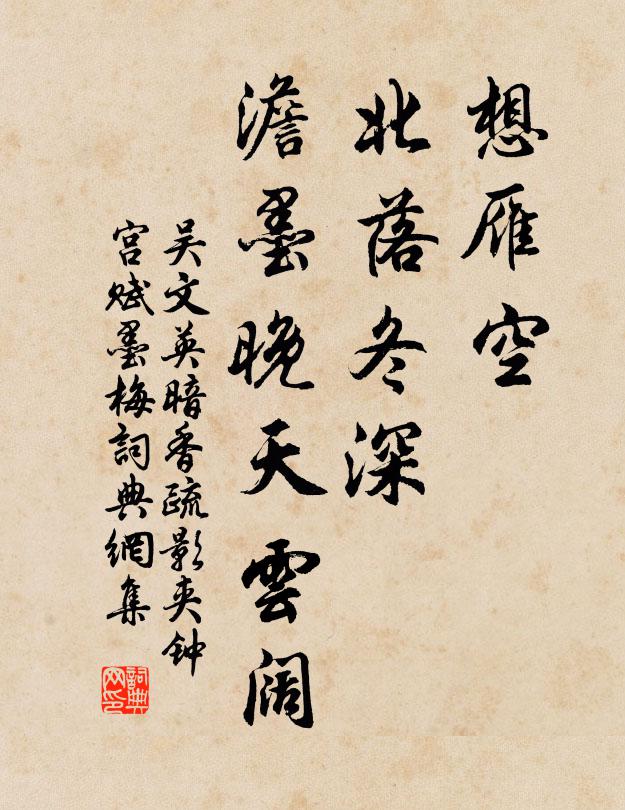 想雁空
北落冬深
澹墨晚天雲阔
吴文英暗香疏影夹钟
宫赋墨梅詞典網集
詞典
网印